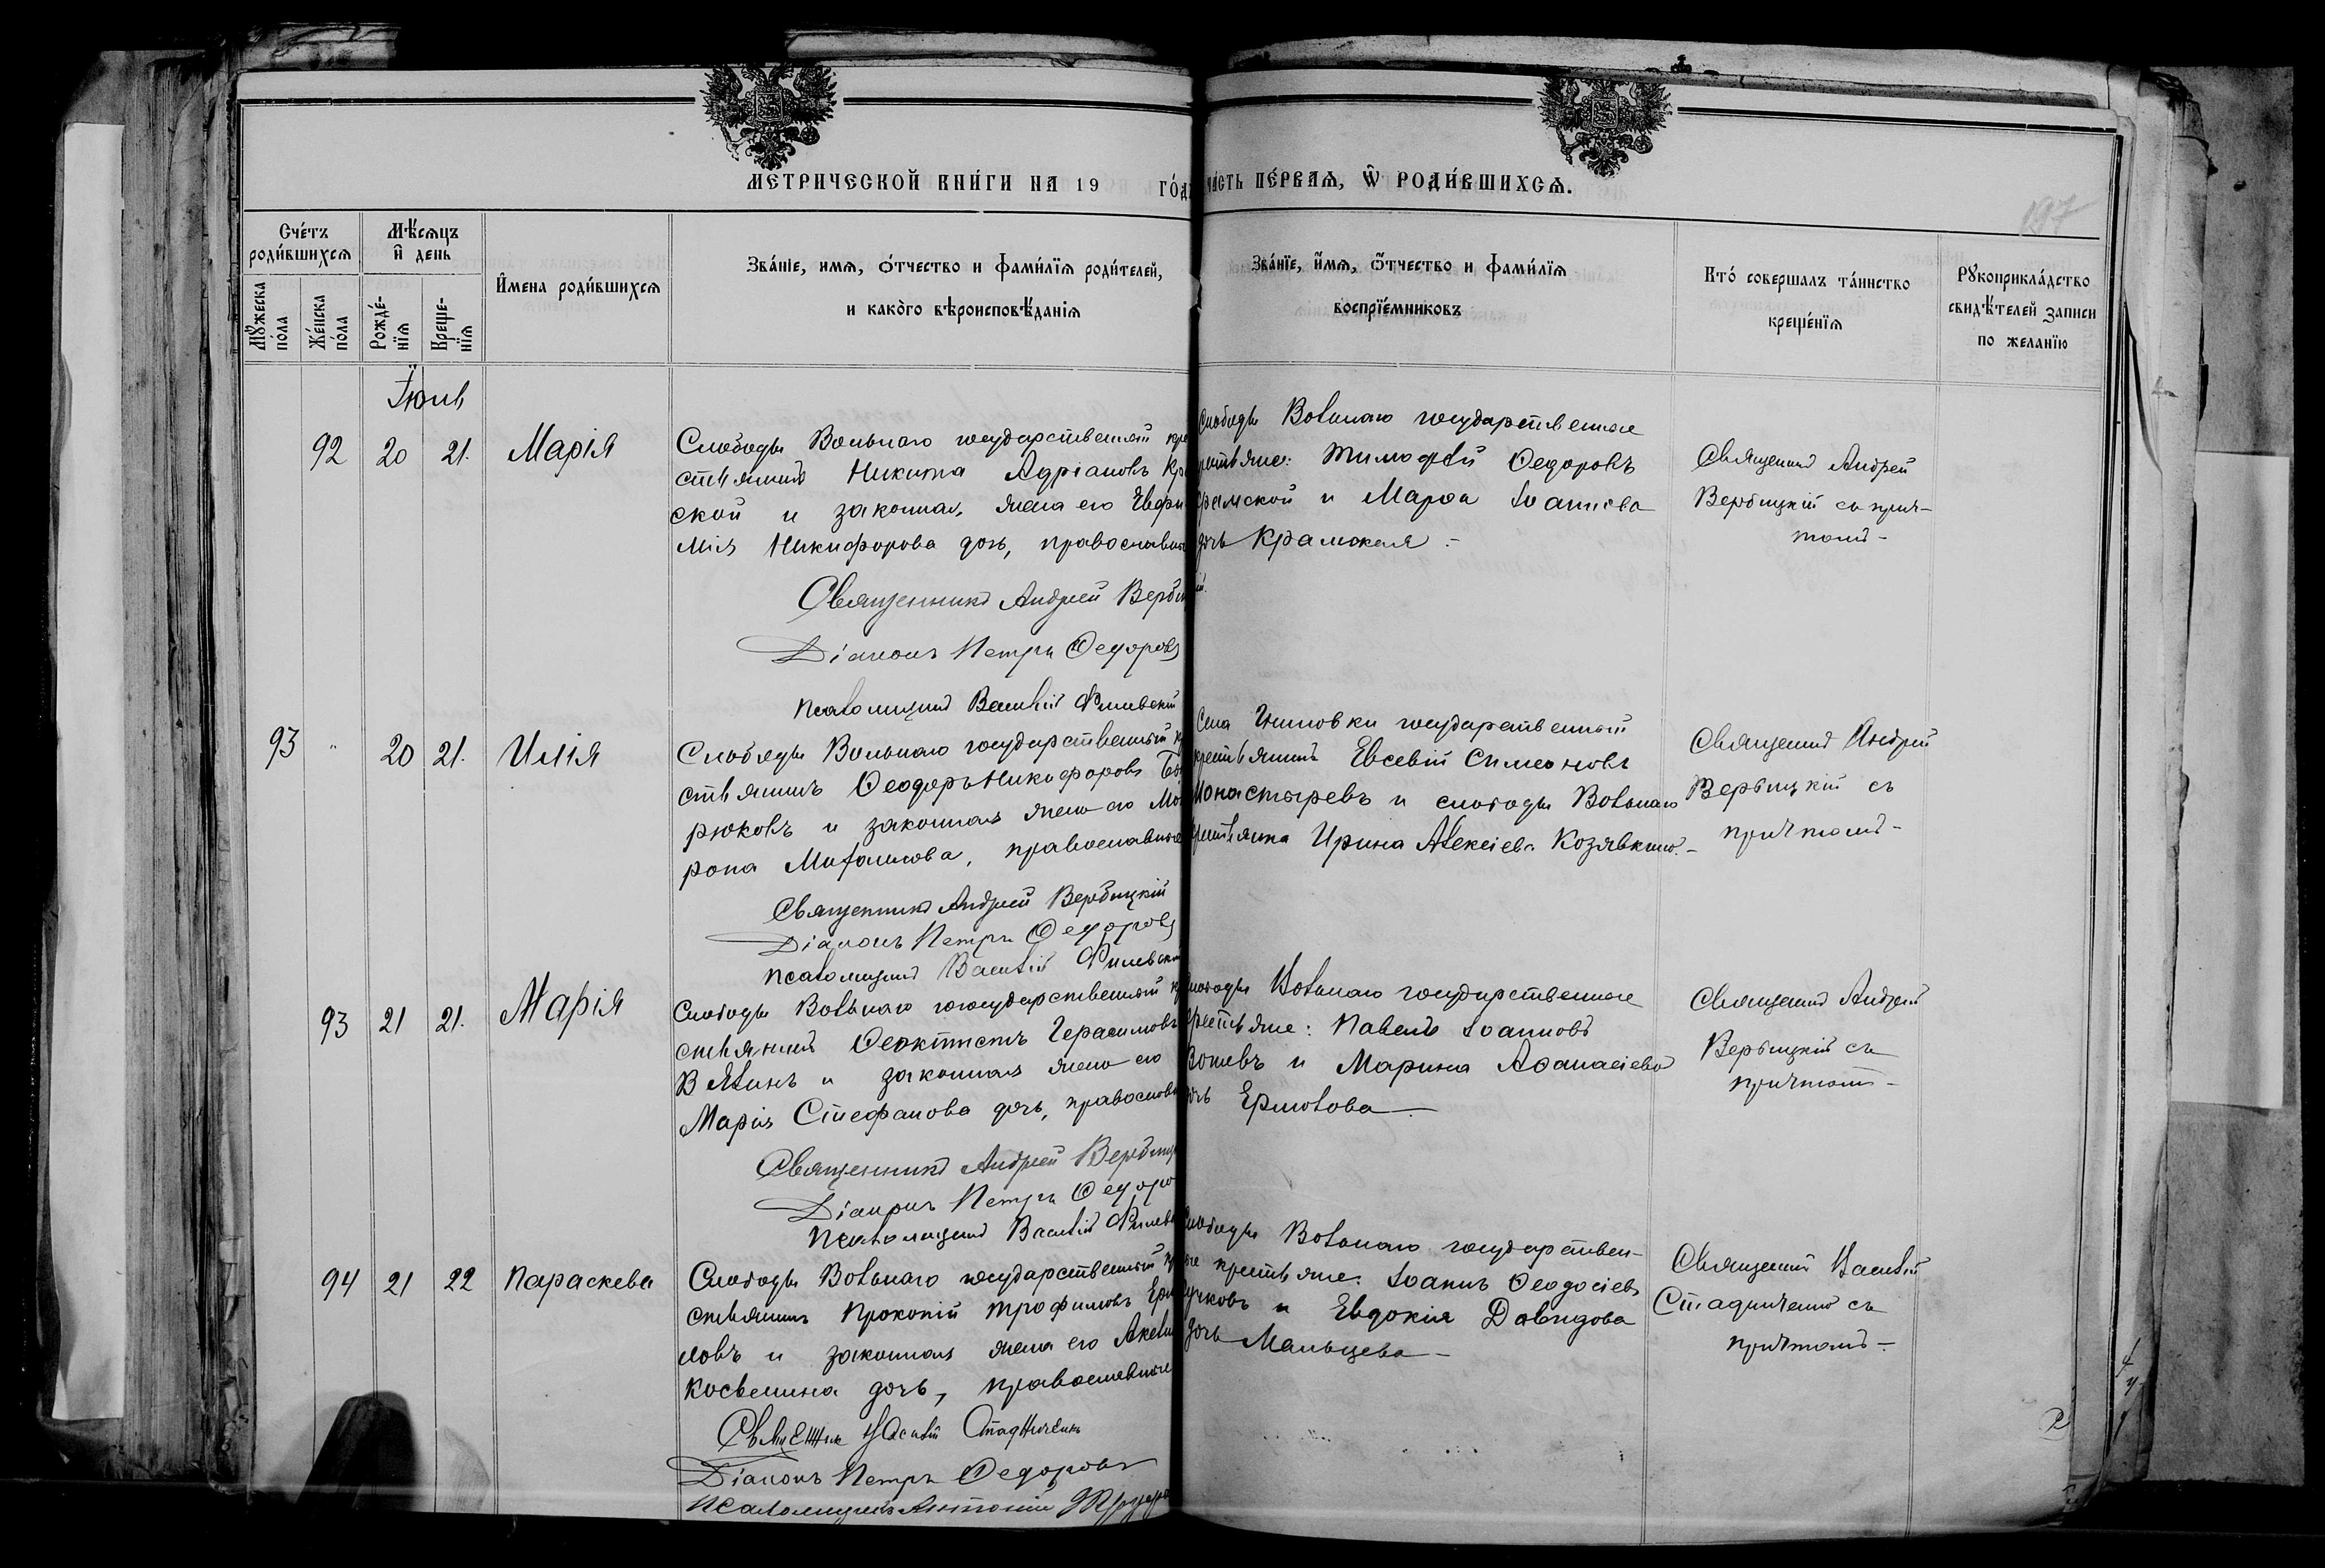 МЕТРИЧЕСКОЙ КНИ́ГИ НА 19 ГО́ДЪ
ЧА́СТЬ ПЕ́РВАѦ, Ѡ҆ РОДИ́ВШИХСѦ.
197
Сче́тъ роди́вшихсѧ
Мѣ́сѧцъ и҆ день
И҆мена роди́вшихсѧ
Зва́нїе, имѧ, ѻ́тчество и фами́лїѧ роди́телей,
и како́го вѣроисповѣ́данїѧ
Зва́нїе, и҆мѧ, ѻ҆́тчество и фами́лїѧ
воспрїе́мниковъ
Кто́ совершалъ та́инство
креще́нїѧ
Рꙋкоприкла́дство
свидѣ́телей записи
по желанїю
Мꙋ́жеска по́ла
Же́нска по́ла
Рожде́нїѧ
Креще́нїѧ
Іюнь
92 20 21. Марія
Слободы Вольнаго государственный кре
стьянинъ Никита Адріановъ Кра
ской и законная жена его Евфи
мія Никифорова дочь, православные
Священникъ Андрей Верби
Діаконъ Петръ Ѳедоровъ
Псаломщикъ Василій
Слободы Вольнаго государственные
крестьяне: Тимофей Ѳедоровъ
Крамской и Марѳа Іоаннова
дочь Крамская
Священникъ Андрей
Вербицкій съ прич-
томъ
93 " 20 21. Илія
Слободы Вольнаго государственный кр
стьянинъ Ѳеодоръ Никифоровъ Би
рюковъ и законная жена его Мо
рона Михаилова, православные
Священникъ Андрей Вербицкій
Діаконъ Петръ Ѳедоровъ
Псаломщикъ Василій
Села государственный
крестьянинъ Евсевій Симеоновъ
Монастыревъ и слободы Вольнаго
крестьянка Ирина Алексіева Козявкина
Священникъ Андрей
Вербицкій съ
причтомъ
93 21 21. Марія
Слободы Вольнаго государственный кр
стьянинъ Ѳеоктистъ Герасимовъ
Вялинъ и законная жена его
Марія Стефанова дочь, православн
Священникъ Андрей Вербицк
Діаконъ Петръ Ѳедоро
Псаломщикъ Василій
Слободы Вольнаго государственные
крестьяне: Павелъ Іоанновъ
и Марина Аѳанасіева
дочь Ермолова
Священникъ Андрей
Вербицкій съ
причтомъ
94 21 22 Параскева
Слободы Вольнаго государственный кр
стьянинъ Прокопій Трофимовъ Ерм
ловъ и законная жена его Акели
дочь, православные
Священникъ Василій Стадниченко
Діаконъ Петръ Ѳедоровъ
Псаломщикъ Антоній
Слободы Вольнаго государствен-
ые крестьяне: Іоаннъ Ѳеодосіевъ
и Евдокія Давидова
дочь Мальцева
Священникъ Василій
Стадниченко съ
причтомъ